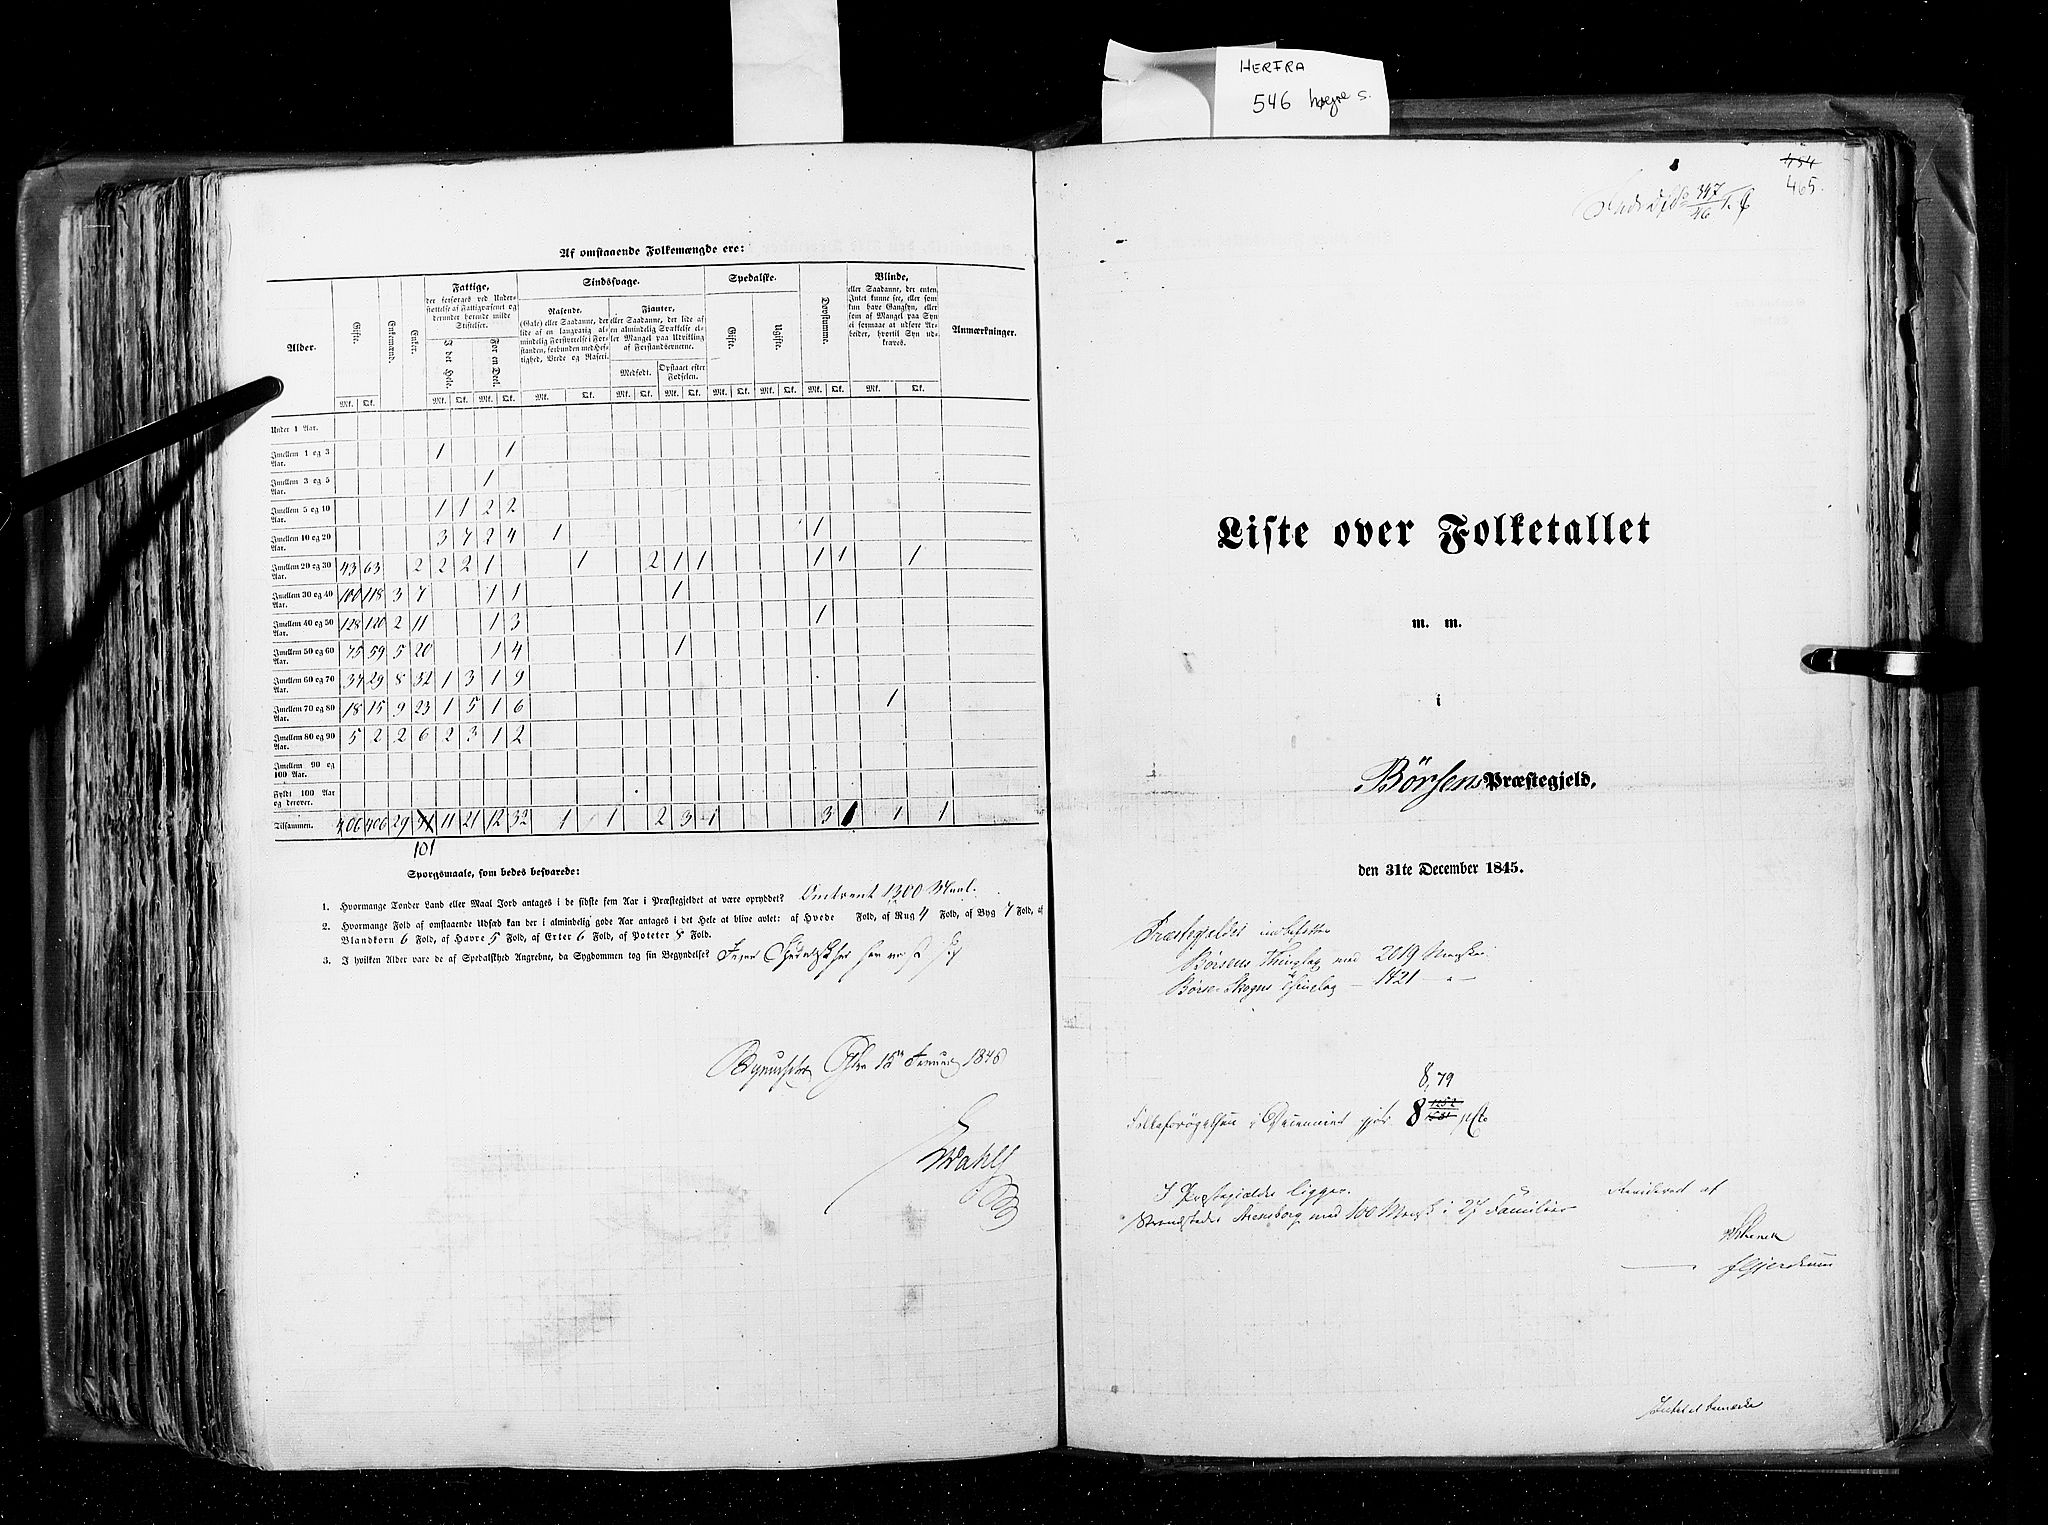 HERFRA
546 høgre s.
Af omstaaende Folkemængde ere:
Alder. Gifte. Enkemænd. Enker. Fattige, der forsørges ved Understøttelse af Fattigvæsenet og derunder hørende milde Stiftelser. Sindssvage. Spedalske. Døvstumme. Blinde, eller Saadanne, der enten Intet kunne see, eller som kun have Gangsyn, eller som af Mangel paa Syn ei formaae at udføre Arbeider, hvortil Syn udkræves. Anmærkninger.
I det Hele. For en Deel. Rasende. (Gale) eller Saadanne, der lide af en langvarig almindelig Forstyrrelse i Forstanden, forbunden med Heftighed, Vrede og Raseri. Fjanter, eller Saadanne, der lide af en almindelig Svækkelse eller Mangel paa Udvikling af Forstandsevnerne. Gifte. Ugifte.
Medfødt. Opstaaet efter Fødselen.
Mk. Qk. Mk. Qk. Mk. Qk. Mk. Qk. Mk. Qk. Mk. Qk. Mk. Qk. Mk. Qk. Mk. Qk. Mk. Qk.
Under 1 Aar.
Imellem 1 og 3 Aar. 1 1
Imellem 3 og 5 Aar. 1
Imellem 5 og 10 Aar. 1 1 2 2
Imellem 10 og 20 Aar. 3 7 2 4 1 1
Imellem 20 og 30 Aar. 43 63 2 2 2 1 1 2 1 1 1 1 1
Imellem 30 og 40 Aar. 118 3 7 1 1 1
Imellem 40 og 50 Aar. 128 120 2 11 1 3 1
Imellem 50 og 60 Aar. 75 59 5 20 1 4 1
Imellem 60 og 70 Aar. 29 8 32 1 3 1 9
Imellem 70 og 80 Aar. 18 15 9 23 1 5 1 6 1
Imellem 80 og 90 Aar. 5 2 2 6 2 3 1 2
Imellem 90 og 100 Aar.
Fyldt 100 Aar og derover.
Tilsammen. 406 406 29 11 21 12 32 1 1 2 3 1 3 1 1 1
101
Spørgsmaale, som bedes besvarede:
1. Hvormange Tønder Land eller Maal Jord antages i de sidste fem Aar i Præstegjeldet at være opryddet? Omtrent 1300 Maal.
2. Hvormange Fold af omstaaende Udsæd kan der i almindelig gode Aar antages i det Hele at blive avlet: af Hvede Fold, af Rug 4 Fold, af Byg 7 Fold, af
Blandkorn 6 Fold, af Havre 5 Fold, af Erter 6 Fold, af Poteter 8 Fold.
3. I hvilken Alder vare de af Spedalskhed Angrebne, da Sygdommen tog sin Begyndelse?
15 Januar 1846
Wahl
454
465.
397
46
Liste over Folketallet
m. m.
i
Börsens Præstegjeld,
den 31te December 1845.
Præstegjeldet indbefatter
Börsens Thinglag med 2019 Mennsk:
Börse-Skogns Thinglag — 1421 — " —
8,79
Folkeforøgelsen i Decenniet gjør 8 1252 pCto
I Præstegjeldet ligger
Strandstedet med 160 Mensk. i 27 Familier
Revideret af